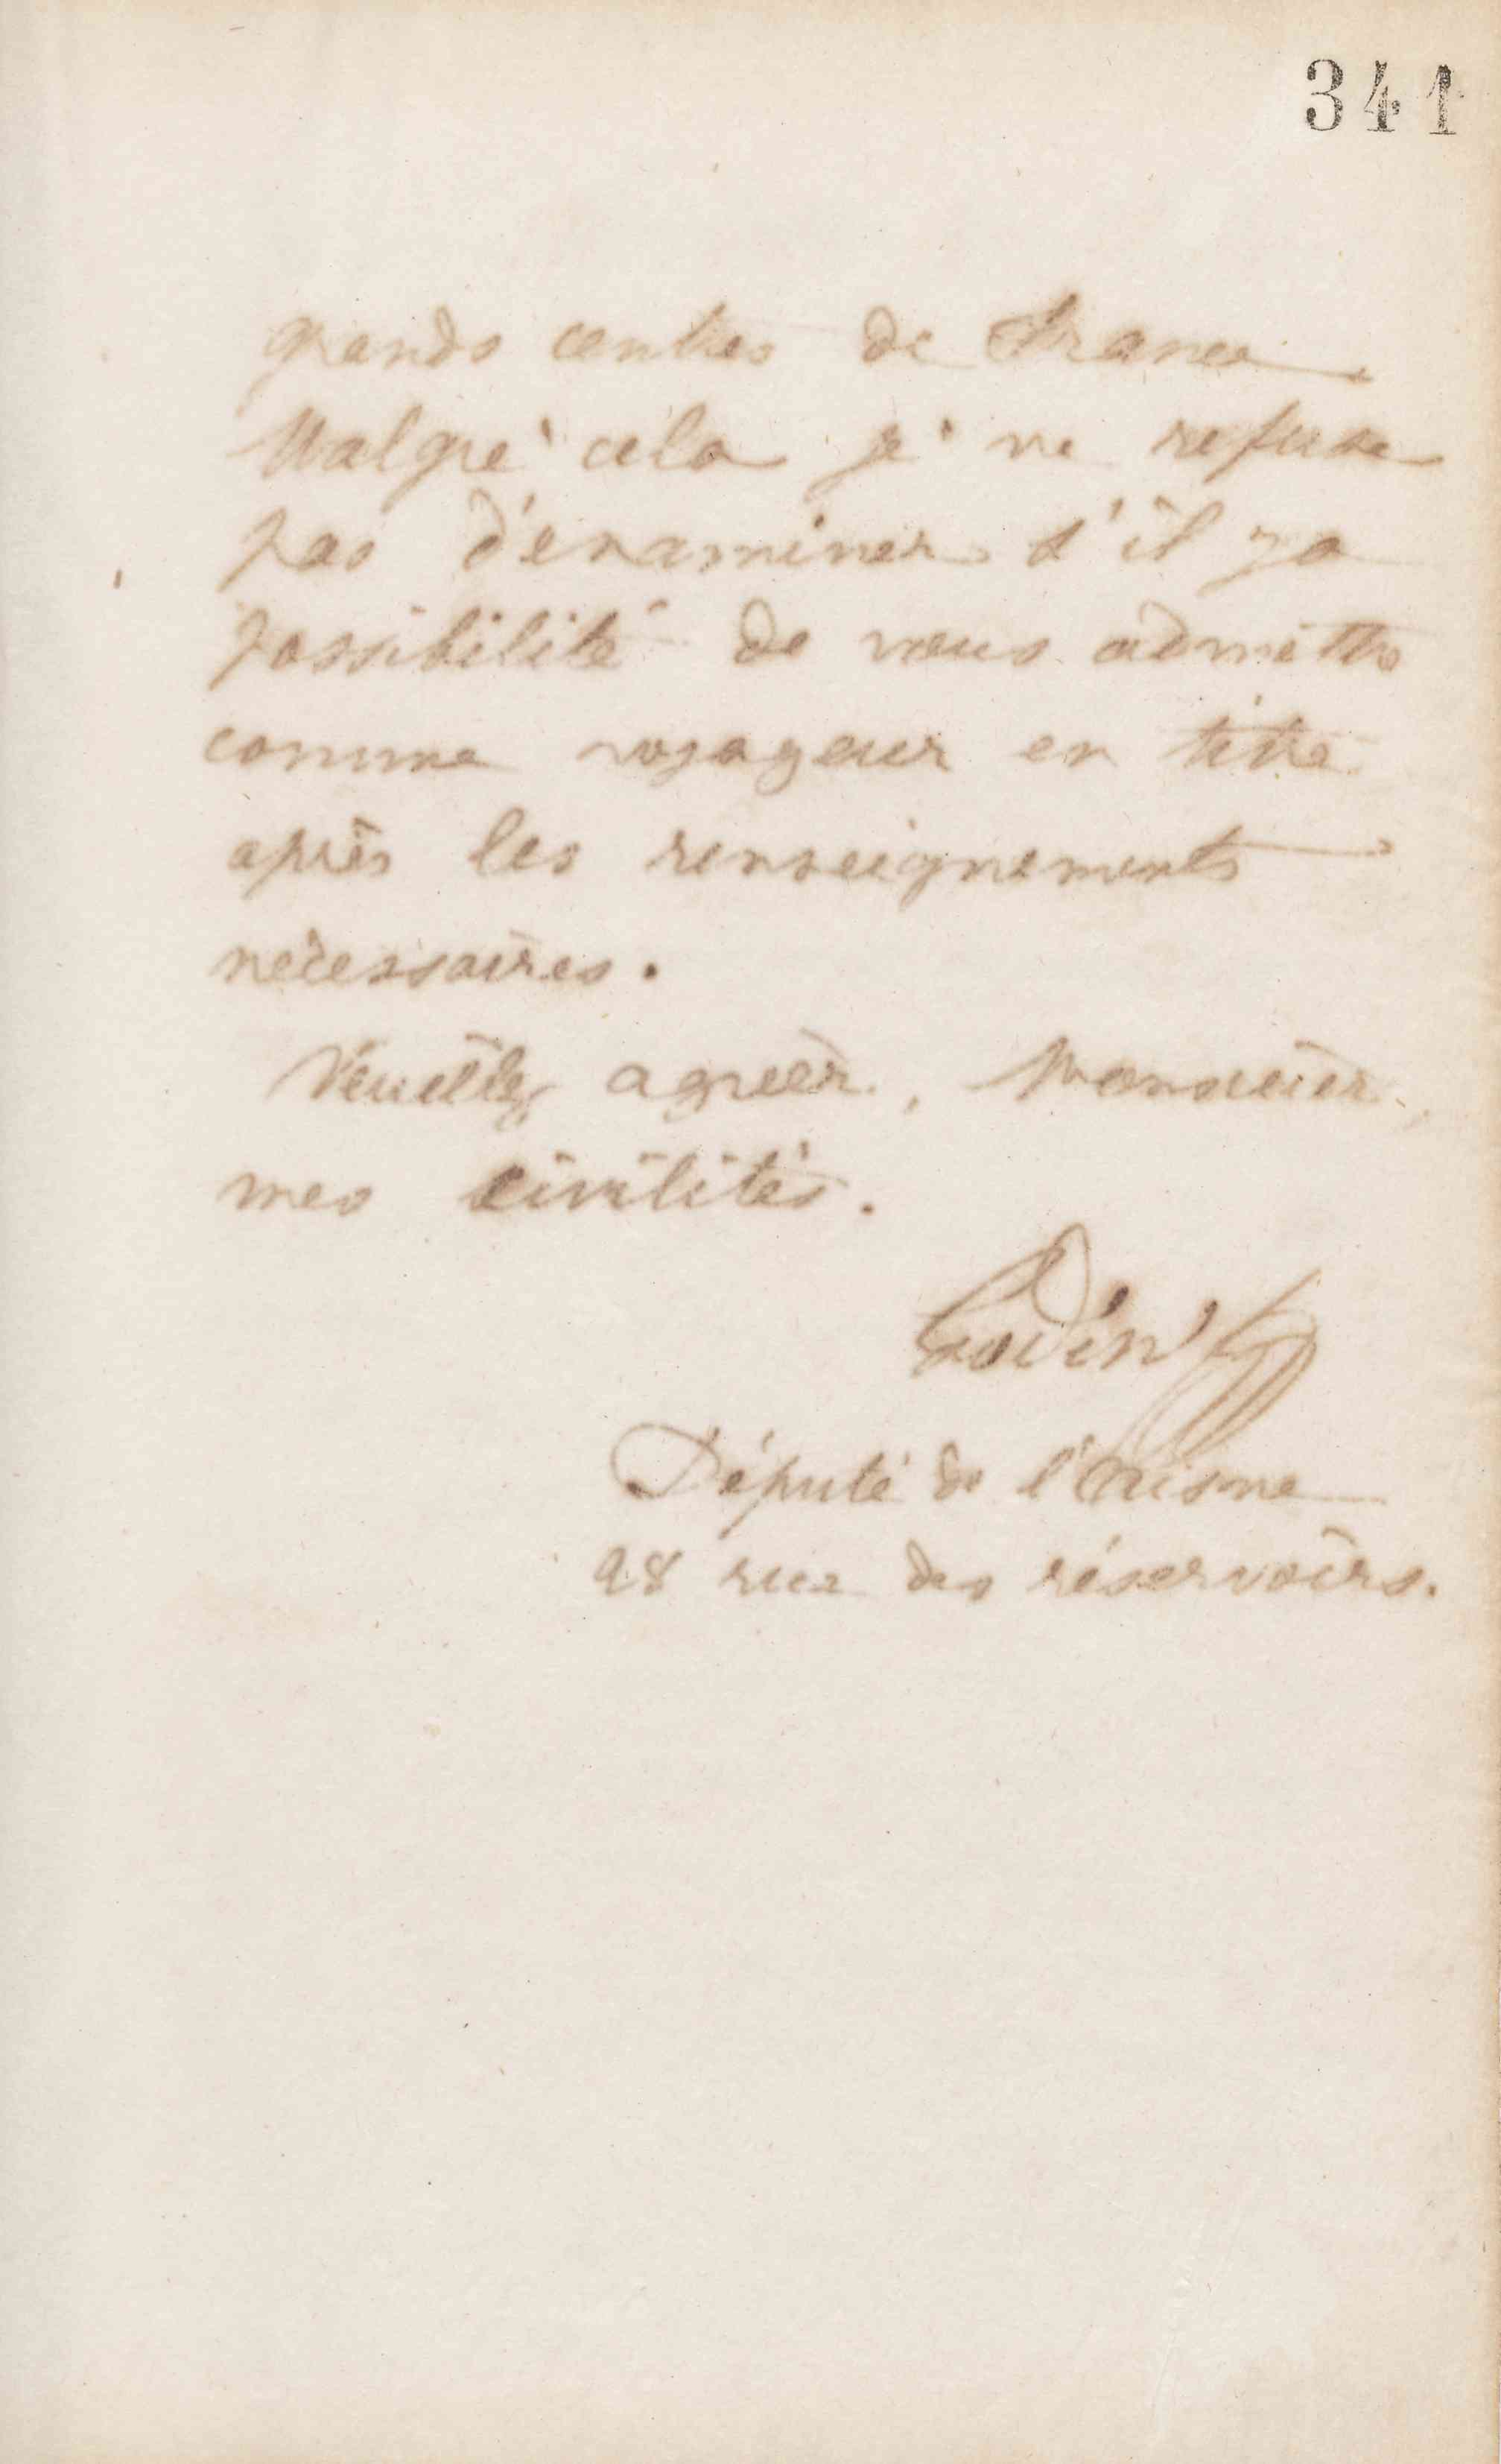 341
grands centres de France.
Malgré cela je ne refuse
pas d'examiner s'il y a
possibilité de vous admettre
comme voyageur en titre
après les renseignements
nécessaires.
Veuillez agréer, Monsieur,
mes civilités.
Godin
Député de l'Aisne
28 rue des réservoirs.